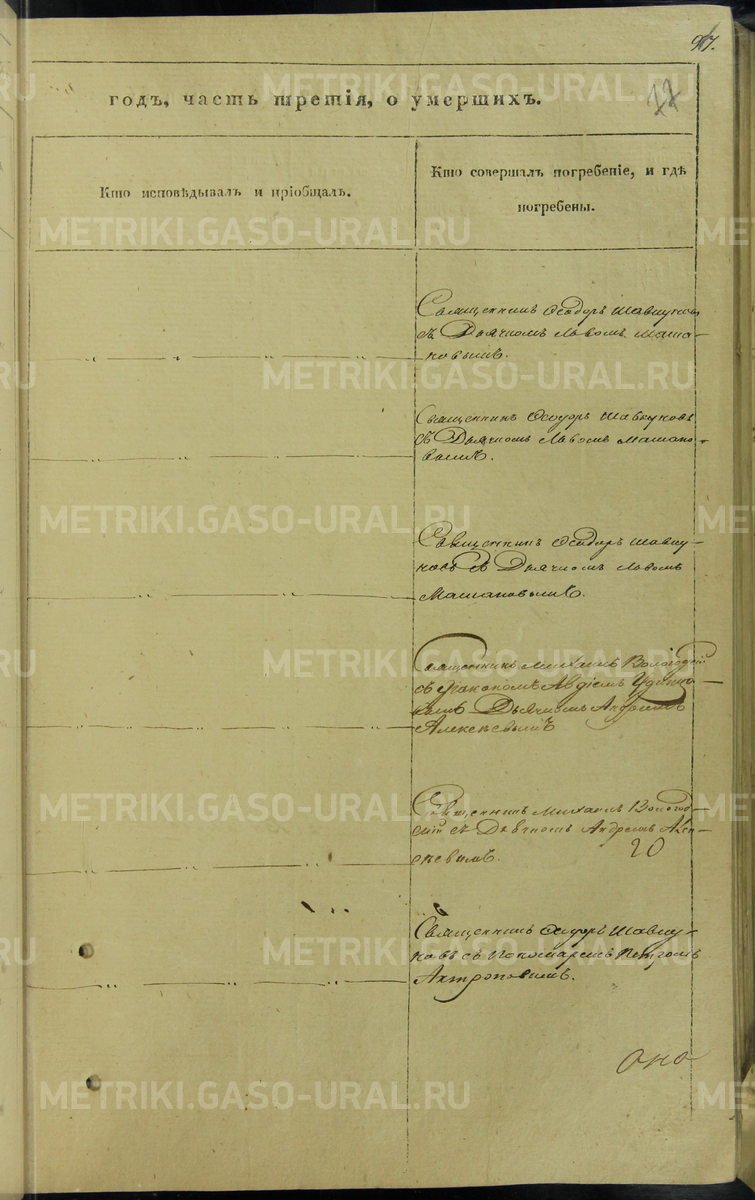 97.
годъ, часть третія, о умершихъ.
Кто исповѣдывалъ и пріобщалъ.
Кто совершалъ погребеніе, и гдѣ
погребены.
METRIKI.GASO-URAL.RU
Священникъ Ѳеодоръ Шавкуновъ
съ Дьячкомъ Львомъ Мама-
новымъ.
Священникъ Ѳеодоръ Шавкуновъ
съ Дьячкомъ Львомъ Мамано-
вымъ.
Священникъ Ѳеодоръ Шавку-
новъ съ Дьячкомъ Львомъ
Мамановымъ.
Священникъ Михаилъ Вологодскій
съ Діакономъ Авдіемъ
Дьячкомъ Андреемъ
Алексѣевымъ
Священникъ Михаилъ Волого-
скій съ Дьячкомъ Андреемъ Алек-
20
сѣевымъ.
Священникъ Ѳеодоръ Шавку-
новъ съ Пономаремъ Петромъ
Антроповымъ.